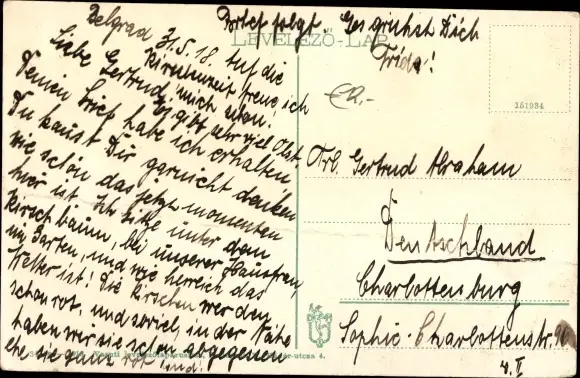 Brief folgt. Es grüßt Dich
Frida!
LEVELEZŐ-LAP
Belgrad 31.5.18. Auf die
Liebe Gertrud! Kirschenzeit freue ich
mich schon! Es gibt sehr viel Obst.
Deinen Brief habe ich erhalten,
Du kannst Dir garnicht denken
wie schön das jetzt momentan
hier ist. Ich sitze unter dem
Kirschbaum, bei unserer Hausfrau,
im Garten, und wie herrlich das
Wetter ist! Die Kirschen werden
schon rot, und soviel, in der Nähe
haben wir sie schon abgegessen
ehe sie ganz rot sind!
351934
Frl. Gertrud Abraham
Deutschland
Charlottenburg
Sophie-Charlottenstr. 96
4. II
-utcza 4.